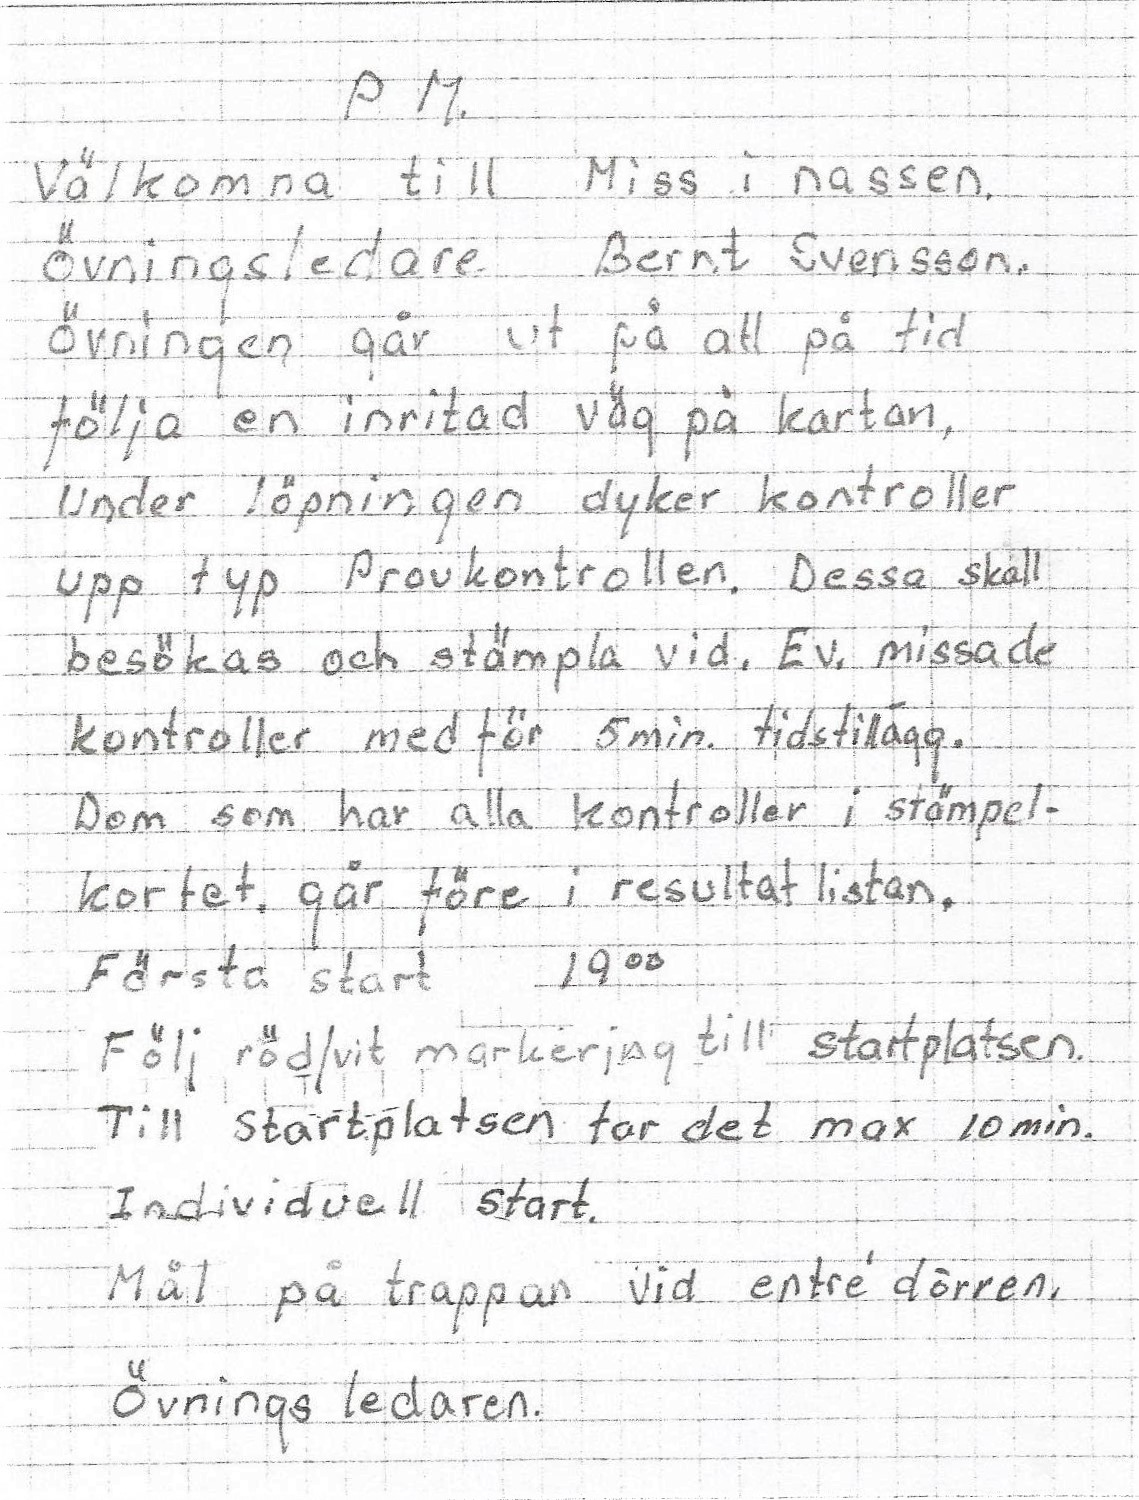 P M.
Välkomna till Miss i nassen.
Övningsledare Bernt Svensson.
Övningen går ut på att på tid
följa en inritad väg på kartan,
Under löpningen dyker kontroller
upp typ Provkontrollen. Dessa skall
besökas och stämpla vid. Ev. missade
kontroller medför 5min. tidstillägg.
Dom som har alla kontroller i stämpel-
kortet. går före i resultatlistan.
Första start 19⁰⁰
Följ röd/vit markering till startplatsen.
Till startplatsen tar det max 10min.
Individuell start.
Mål på trappan vid entré dörren.
Övnings ledaren.